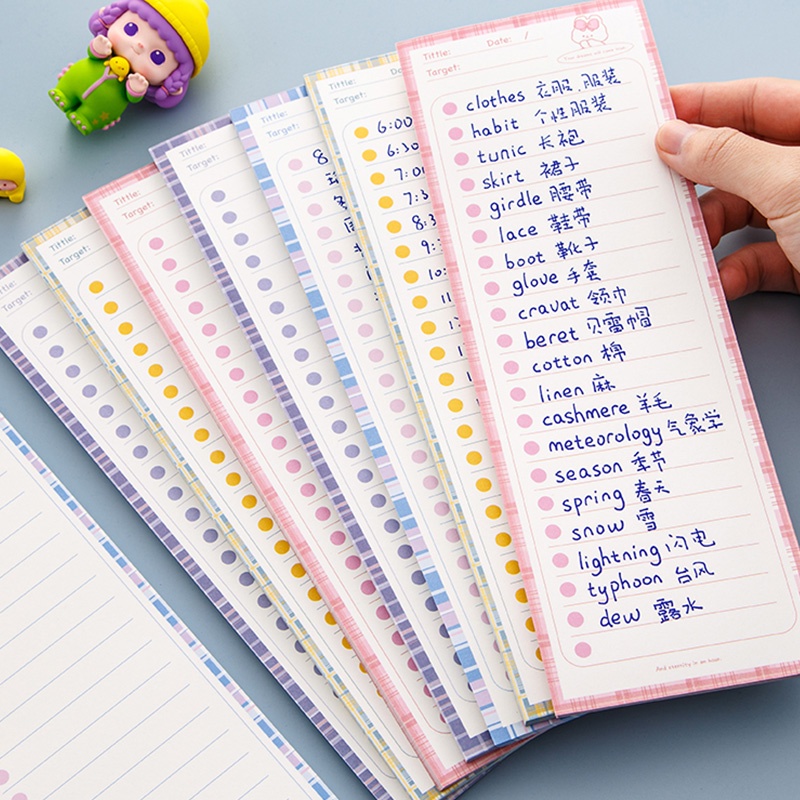 Tittle: Date: /
Target:
clothes 衣服,服装
habit 个性服装
tunic 长袍
skirt 裙子
girdle 腰带
lace 鞋带
boot 靴子
glove 手套
cravat 领巾
beret 贝雷帽
cotton 棉
linen 麻
cashmere 羊毛
meteorology 气象学
season 季节
spring 春天
snow 雪
lightning 闪电
typhoon 台风
dew 露水
And eternity in an hour.
Tittle:
Target:
6:00
6:30
7:3
8:3
Tittle:
Target:
8
Tittle:
Target:
Tittle:
Target:
Tittle:
Target:
Tittle:
Target: